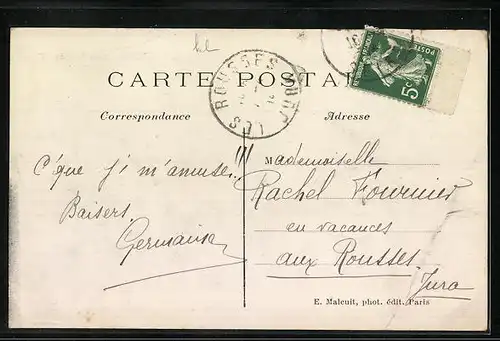 CARTE POSTALE
Correspondance
Adresse
LES ROUSSES JURA
POSTE
5c
C'que j'm'amuse..!!!
Baisers.
Germaine
Mademoiselle
Rachel Fournier
en vacances
aux Rousses
Jura
E. Malcuit, phot. édit. Paris